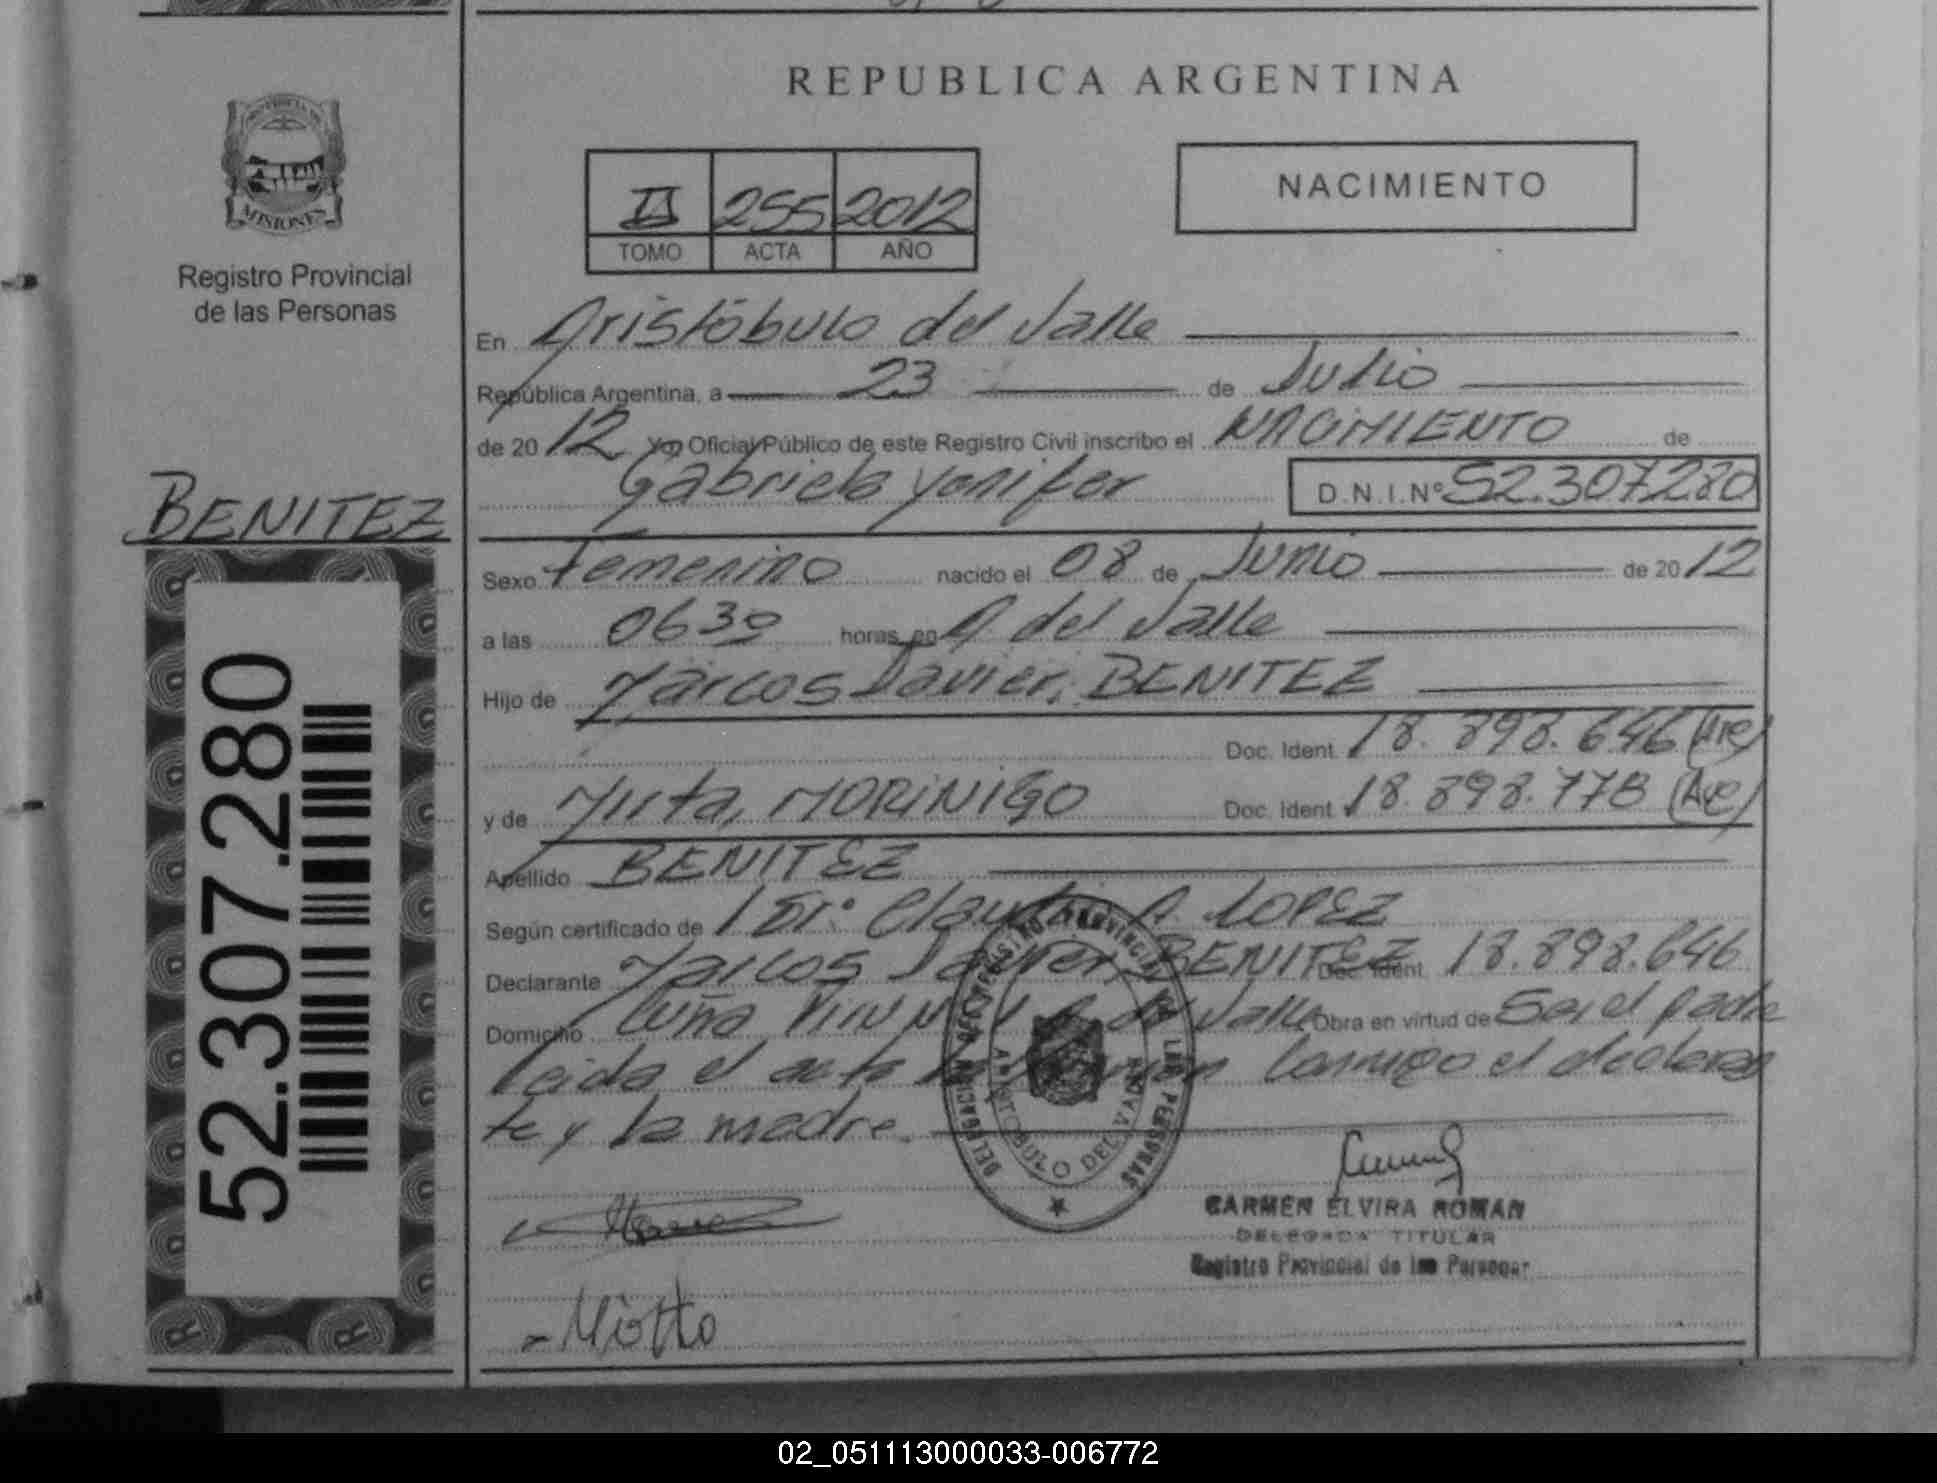 REPUBLICA ARGENTINA
PROVINCIA DE
MISIONES
Registro Provincial
de las Personas
II 255 2012
TOMO ACTA AÑO
NACIMIENTO
En Aristóbulo del Valle
República Argentina, a 23 de Julio
de 2012 Yo, Oficial Público de este Registro Civil inscribo el NACIMIENTO de
Gabriela Yenifer D.N.I.Nº 52.307.280
BENITEZ
52.307.280
Sexo Femenino nacido el 08 de Junio de 2012
a las 0630 horas, en A. del Valle
Hijo de Marcos Javier, BENITEZ
Doc. Ident. 18.898.646
y de Mirta, MORINIGO Doc. Ident. 18.898.778
Apellido BENITEZ
Según certificado de A. LOPEZ
Declarante Marcos Javier BENITEZ Doc. Ident. 18.898.646
Domicilio Cuña Pirú Valle Obra en virtud de Ser el padre
leida el acta conmigo el declaran
te y la madre.
DELEGACION DEL REGISTRO PROVINCIAL DE LAS PERSONAS
ARISTOBULO DEL VALLE
CARMEN ELVIRA ROMAN
DELEGADA TITULAR
Registro Provincial de las Personas
02_051113000033-006772